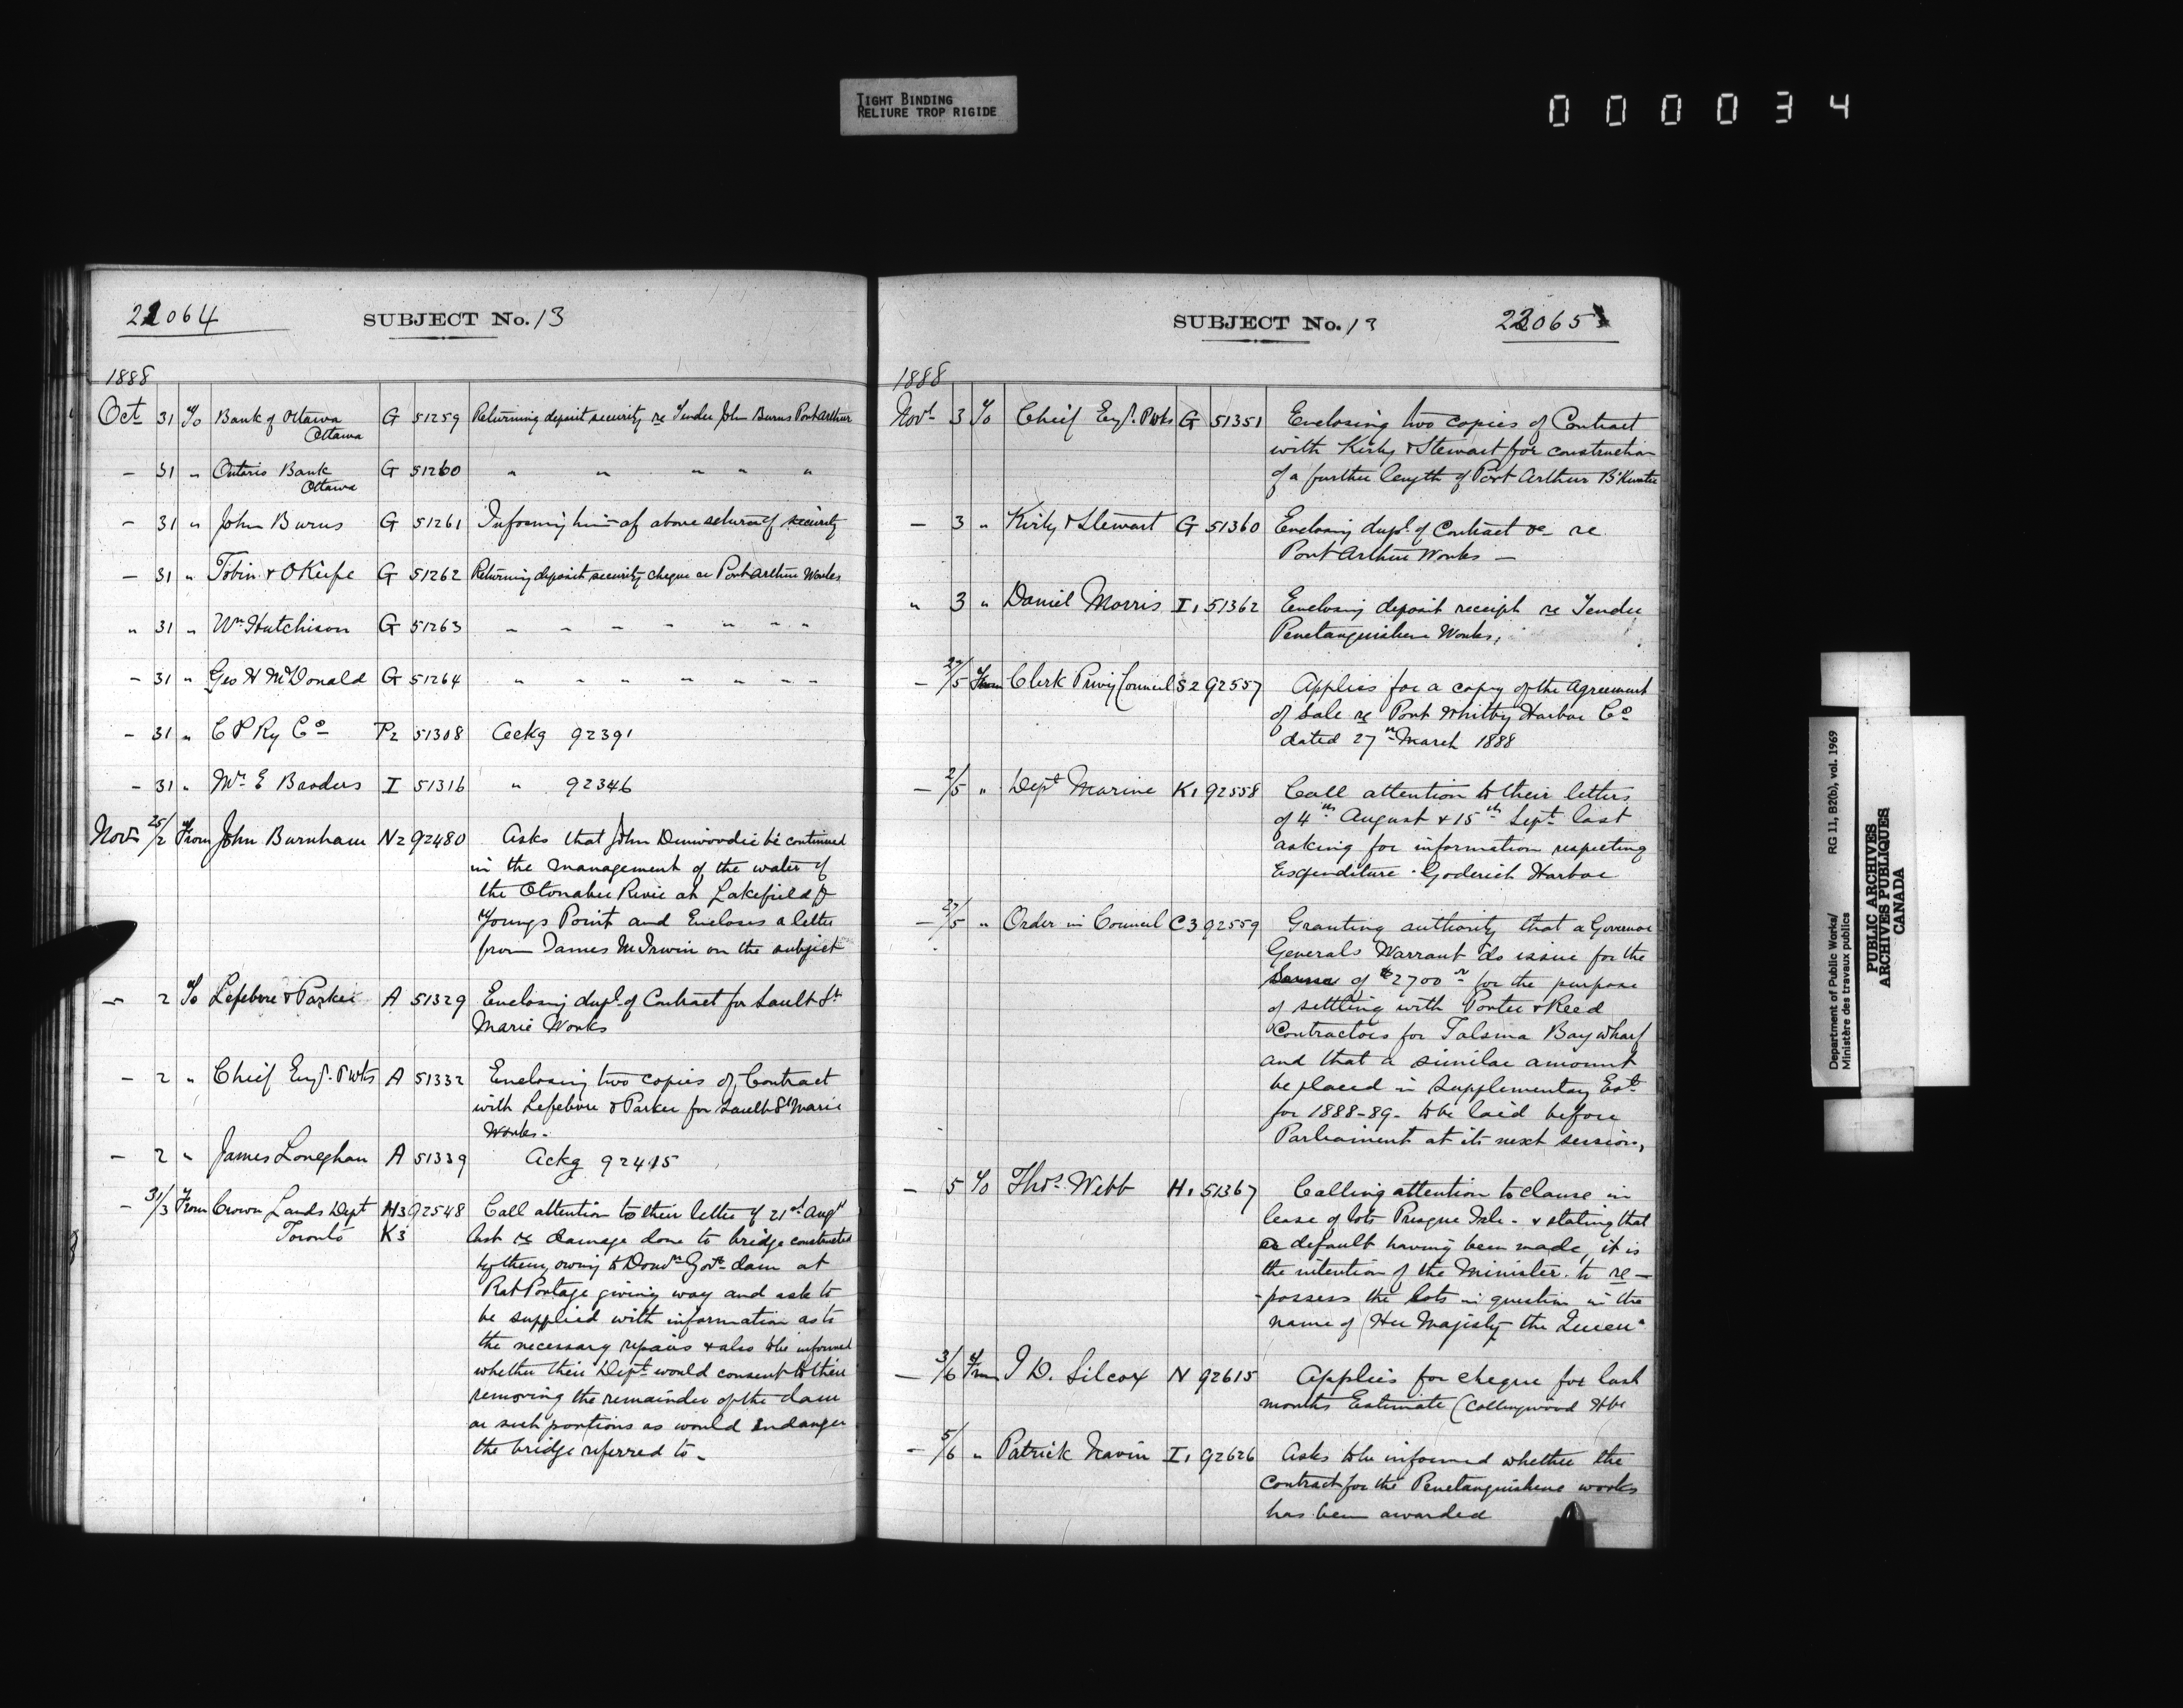 TIGHT BINDING
RELIURE TROP RIGIDE
000034
22064
SUBJECT No. 13
1888
Oct 31 To Bank of Ottawa G 51259 Returning deposit security re Tender John Burns Port Arthur
Ottawa
— 31 " Ontario Bank G 51260 " " " " "
Ottawa
— 31 " John Burns G 51261 Informing him of above return of security
— 31 " Tobin & O'Kiefe G 51262 Returning deposit security cheque re Port Arthur Works
" 31 " Wm Hutchison G 51263 " " " " " " "
— 31 " Geo H McDonald G 51264 " " " " " " " "
— 31 " C P Ry Co P2 51308 Ackg 92391
— 31 " Mr E Broders I 51316 " 92346
Novr 25/2 From John Burnham N2 92480 Asks that John Dunwoodie be continued
in the management of the water of
the Otonabee River at Lakefield &
Youngs Point and Encloses a letter
from James McIrwin on the subject
— 2 To Lefebvre & Parker A 51329 Enclosing dupl. of Contract for Sault St
Marie Works
— 2 " Chief Engr. P Wks A 51332 Enclosing two copies of Contract
with Lefebvre & Parker for Sault St Marie
Works.
— 2 " James Loneghan A 51339 Ackg 92415
— 31/3 From Crown Lands Dept H3 92548 Call attention to their letter of 21st Augt
Toronto K3 last re damage done to bridge constructed
by them, owing to Domn Govt dam at
Rat Portage giving way and ask to
be supplied with information as to
the necessary repairs & also to be informed
whether their Dept would consent to their
removing the remainder of the dam
or such portions as would Endanger
the bridge referred to —
SUBJECT No. 13
22065
1888
Novr 3 To Chief Engr. P Wks G 51351 Enclosing two copies of Contract
with Kirby & Stewart for construction
of a further length of Port Arthur B'Kwater
— 3 " Kirby & Stewart G 51360 Enclosing dupl. of Contract &c re
Port Arthur Works —
" 3 " Daniel Morris I1 51362 Enclosing deposit receipt re Tender
Penetanguishene Works,
— 29/5 From Clerk Privy Council S2 92557 Applies for a copy of the Agreement
of Sale re Port Whitby Harbor Co
dated 27th March 1888
— 2/5 " Dept Marine K1 92558 Call attention to their letters
of 4th August & 15th Sept last
asking for information respecting
Expenditure Goderich Harbor
— 27/5 " Order in Council C3 92559 Granting authority that a Governor
Generals Warrant do issue for the
of $2700 for the purpose
of settling with Porter & Reed
Contractors for Talsma Bay wharf
and that a similar amount
be placed in Supplementary Ests
for 1888-89- to be laid before
Parliament at its next session,
— 5 To Thos. Webb H1 51367 Calling attention to clause in
lease of lots Presque Isle - & stating that
as default having been made, it is
the intention of the Minister to re—
-possess the lots in question in the
name of "Her Majesty the Queen"
— 3/6 From J D. Silcox N 92615 Applies for cheque for last
months Estimate (Collingwood Hbr
— 5/6 " Patrick Navin I1 92626 Asks to be informed whether the
Contract for the Penetanguishene works
has been awarded
Department of Public Works/ RG 11, B2(b), vol. 1969
Ministère des travaux publics
PUBLIC ARCHIVES
ARCHIVES PUBLIQUES
CANADA